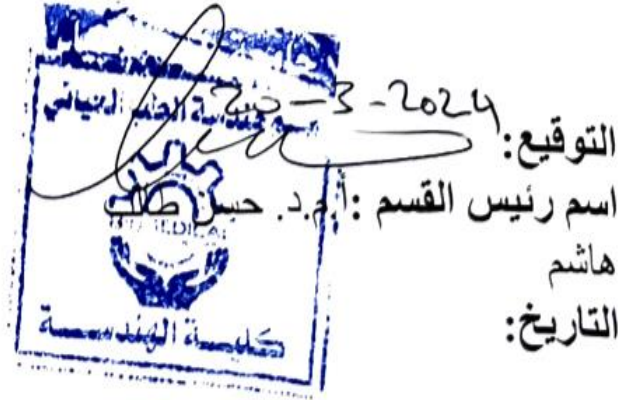 20-3-2024
التوقيع:
اسم رئيس القسم :أ.م.د. حسن طالب
هاشم
التاريخ:
كليـة الهندسـة